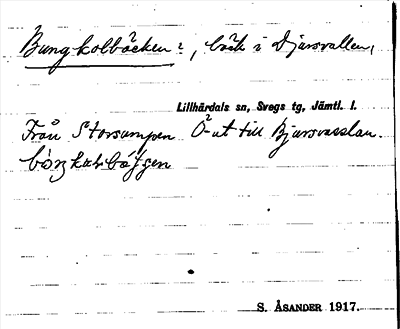 Bungkolbäcken:, bäck i Djursvallen,
Lillhärdals sn, Svegs tg, Jämtl. l.
Från Storsumpen Ö-ut till Bjursvasslan.
S. ÅSANDER 1917.